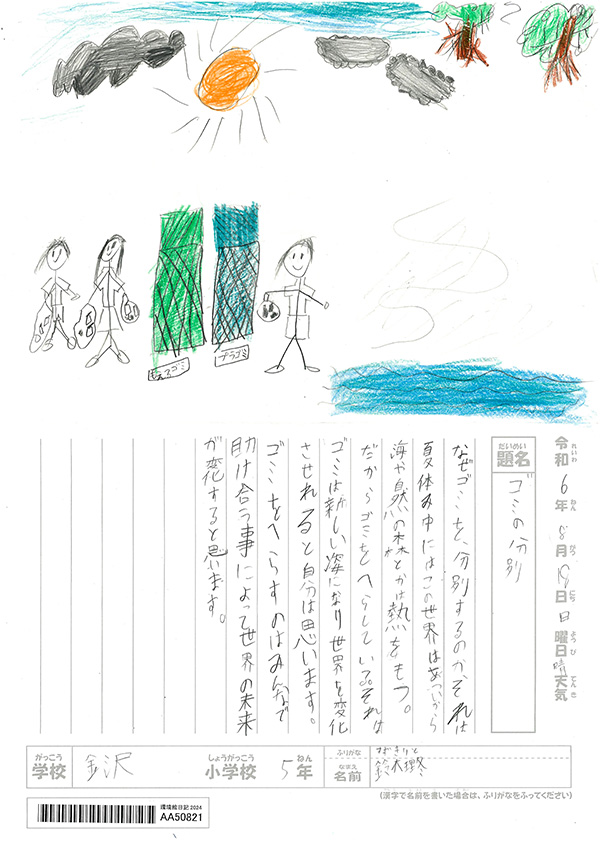 もえるゴミ
プラゴミ
令和6年8月18日日曜日晴天気
れいわ ねん がつ にち ようび てんき
だいめい
題名
ゴミの分別
なぜゴミを、分別するのか、それは
夏休み中にはこの世界はあついから
海や自然の森とかは熱をもつ。
だからゴミをへらしている。それは
ゴミは新しい姿になり世界を変化
させれると自分は思います。
ゴミをへらすのはみんなで
助け合う事によって世界の未来
が変すると思います。
がっこう
学校
金沢
しょうがっこう
小学校
5年
ねん
ふりがな
なまえ
名前
鈴木
(漢字で名前を書いた場合は、ふりがなをふってください)
環境絵日記2024
AA50821